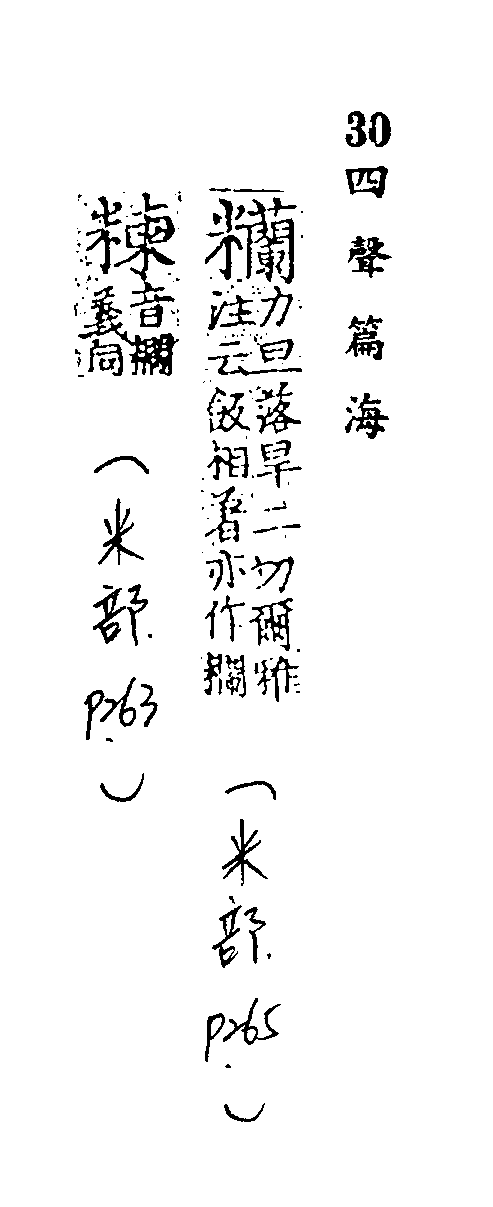 30 四聲篇海
糷
力旦落旱二切爾雅
注云飯相著亦作
（米部 P265）
音
義同
（米部 P263）